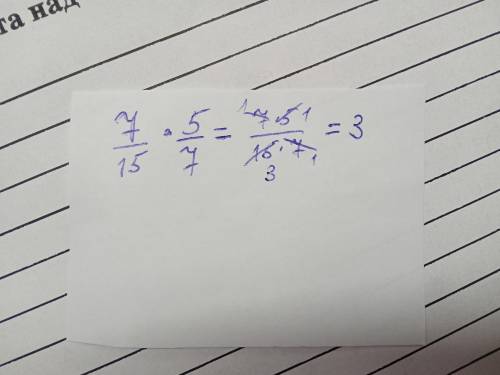 та над
7/15 · 5/7 = 1 7 · 5 1 / 15 · 7 1 = 3
3